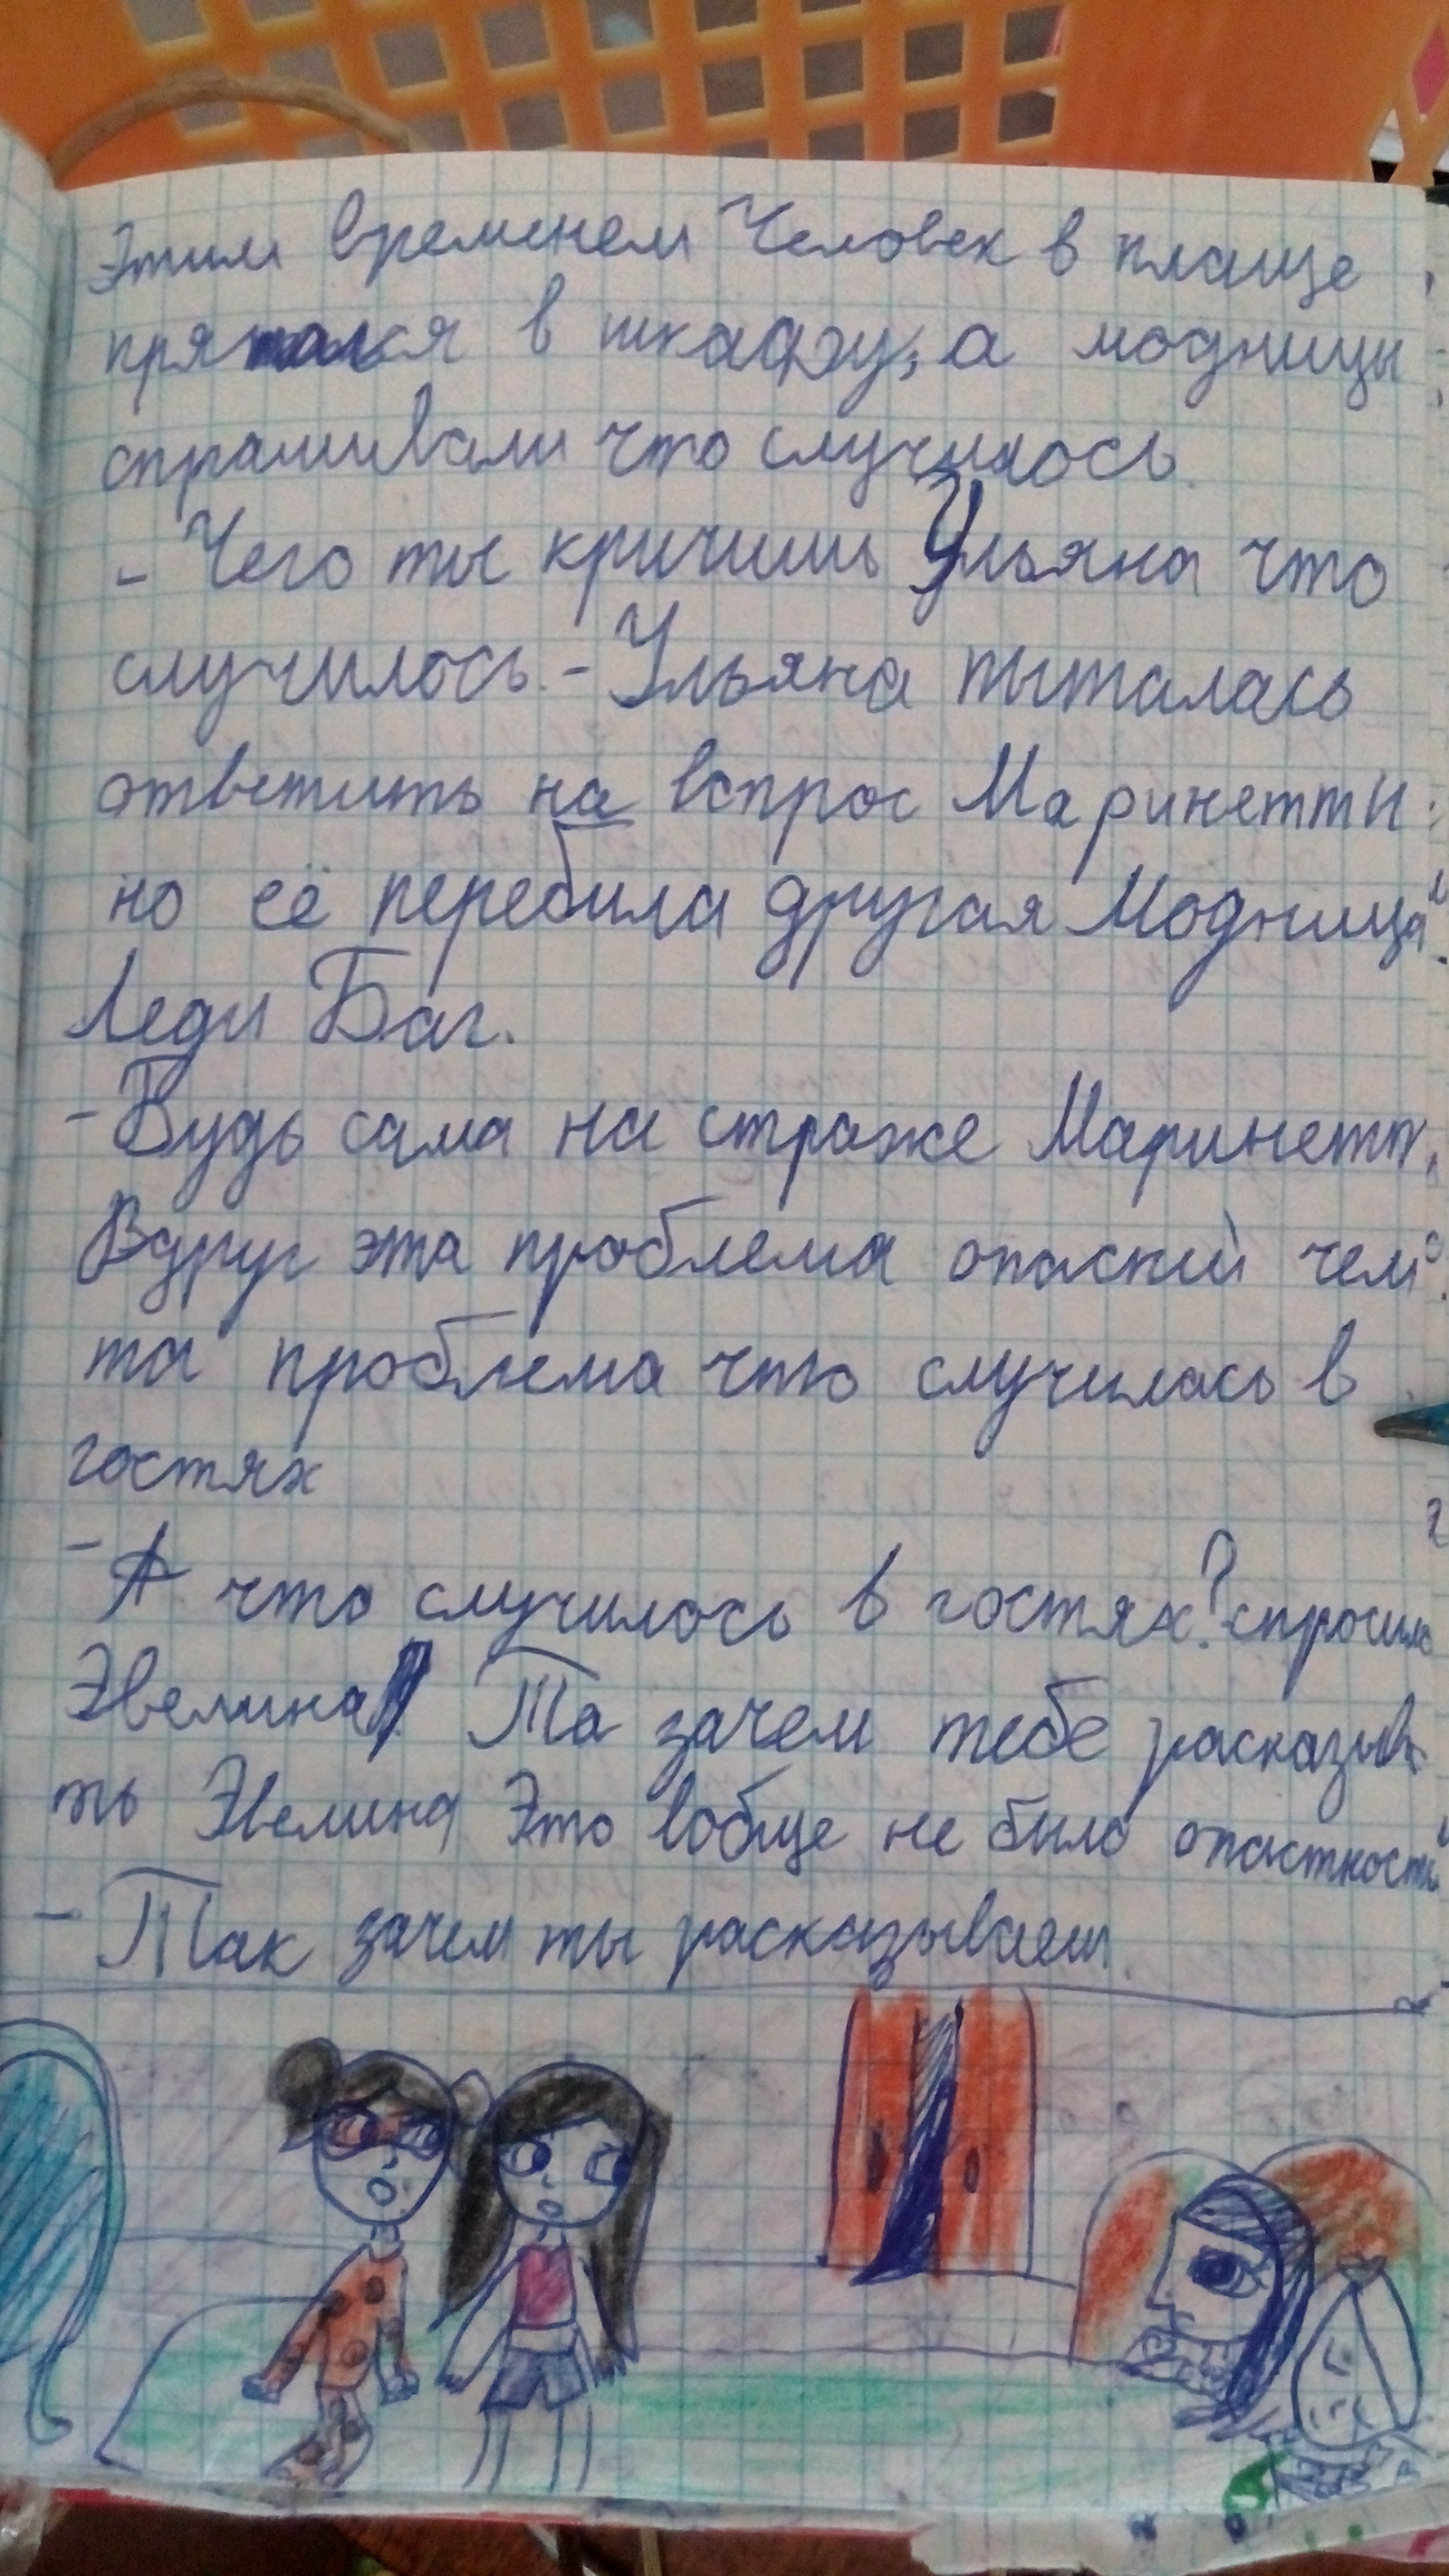 Этим временем Человек в плаще
прятался в шкафу, а модницы
спрашивали что случилось.
- Чего ты кричишь Ульяна что
случилось. - Ульяна пыталась
ответить на вспрос Маринетти
но её перебила другая Модница
Леди Баг.
- Будь сама на страже Маринетт,
Вдруг эта проблема опасний чем
та проблема что случилась в
гостях
- А что случилось в гостях? спросила
Эвелина Та зачем тебе расказыва
ть Эвелина Это вобще не было опастности
- Так зачем ты расказываеш.